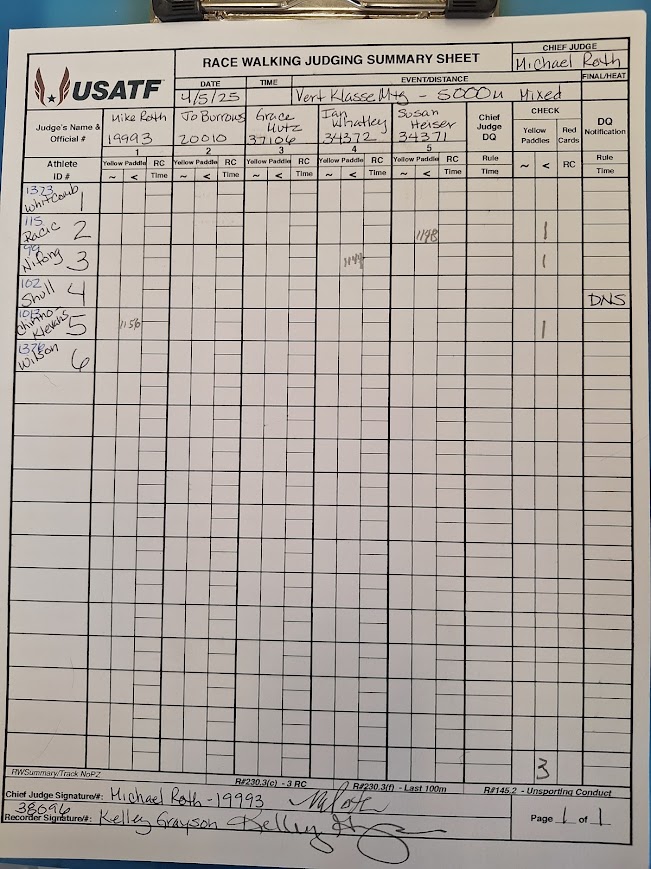 USATF
RACE WALKING JUDGING SUMMARY SHEET
CHIEF JUDGE
Michael Roth
DATE TIME EVENT/DISTANCE FINAL/HEAT
4/5/25 Vert Klasse Mtg - 5000m Mixed
Judge's Name & Official # Mike Roth 19993 Jo Burrows 20010 Grace Hutz 37106 Ian Whatley 34372 Susan Heiser 34371 Chief Judge DQ CHECK Yellow Paddles Red Cards DQ Notification
1 2 3 4 5
Athlete ID # Yellow Paddle RC Yellow Paddle RC Yellow Paddle RC Yellow Paddle RC Yellow Paddle RC Rule ~ < RC Rule
~ < Time ~ < Time ~ < Time ~ < Time ~ < Time Time Time
1323 Whitcomb 1
115 Racic 2 1148 1
99 Nifong 3 1144 1
102 Shull 4 DNS
Klevens 5 1156 1
1376 Wilson 6
3
RWSummary/Track NoPZ R#230.3(c) - 3 RC R#230.3(f) - Last 100m R#145.2 - Unsporting Conduct
Chief Judge Signature/#: Michael Roth - 19993
38096
Recorder Signature/#: Kelley Grayson Kelley
Page 1 of 1